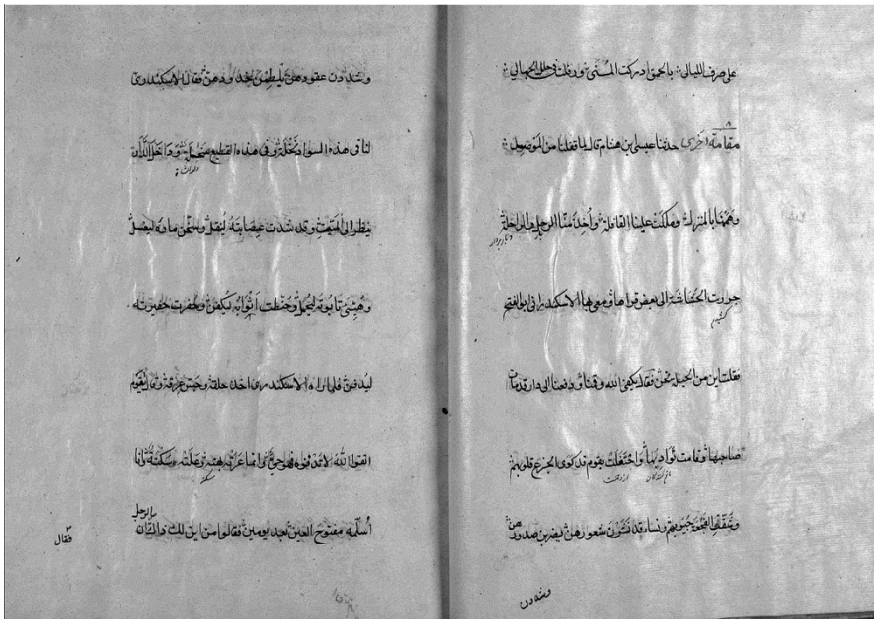 على صرف الليالي بالحمق ادركت المنى ورفلت في حلل الجمال
٨
مقامة اخرى حدثنا عيسى بن هشام قال لما قفلنا من الموصل
وهممنا بالمنزل وملكت علينا القافلة وأخذ منا الرحل والراحلة
جرت الحشاشة الى بعض قراها ومعي بها الاسكندراني ابو الفتح
فقلت اين من الحيلة نحن فقال يكفي الله وقمنا ودفعنا الى دار قد مات
صاحبها وقامت نوادبها واحتفلت بقوم قد كوى الجزع قلوبهم
وشقت الفجيعة جيوبهم ونساء قد نشرن شعورهن يضربن صدورهن
وشددن
وشددن عقودهن يلطمن خدودهن فقال الاسكندري
لنا في هذه السواد نخلة وفي هذه القطيع سخلة ودخل الدار
ينظر الى الميت وقد شدت عصابته لينقل وسخن ماؤه ليغسل
وهيئ تابوته ليحمل وخيطت اثوابه ليكفن وحفرت حفيرته
ليدفن فلما راه الاسكندري اخذ حلقه وجس عرقه وقال يقوم
اتقوا الله لا تدفنوه فهو حي وانما عرته بهتة وعلته سكتة وانا
أسلمه مفتوح العينين بعد يومين فقالوا من اين لك ذلك قال ان
الرجل
فقال